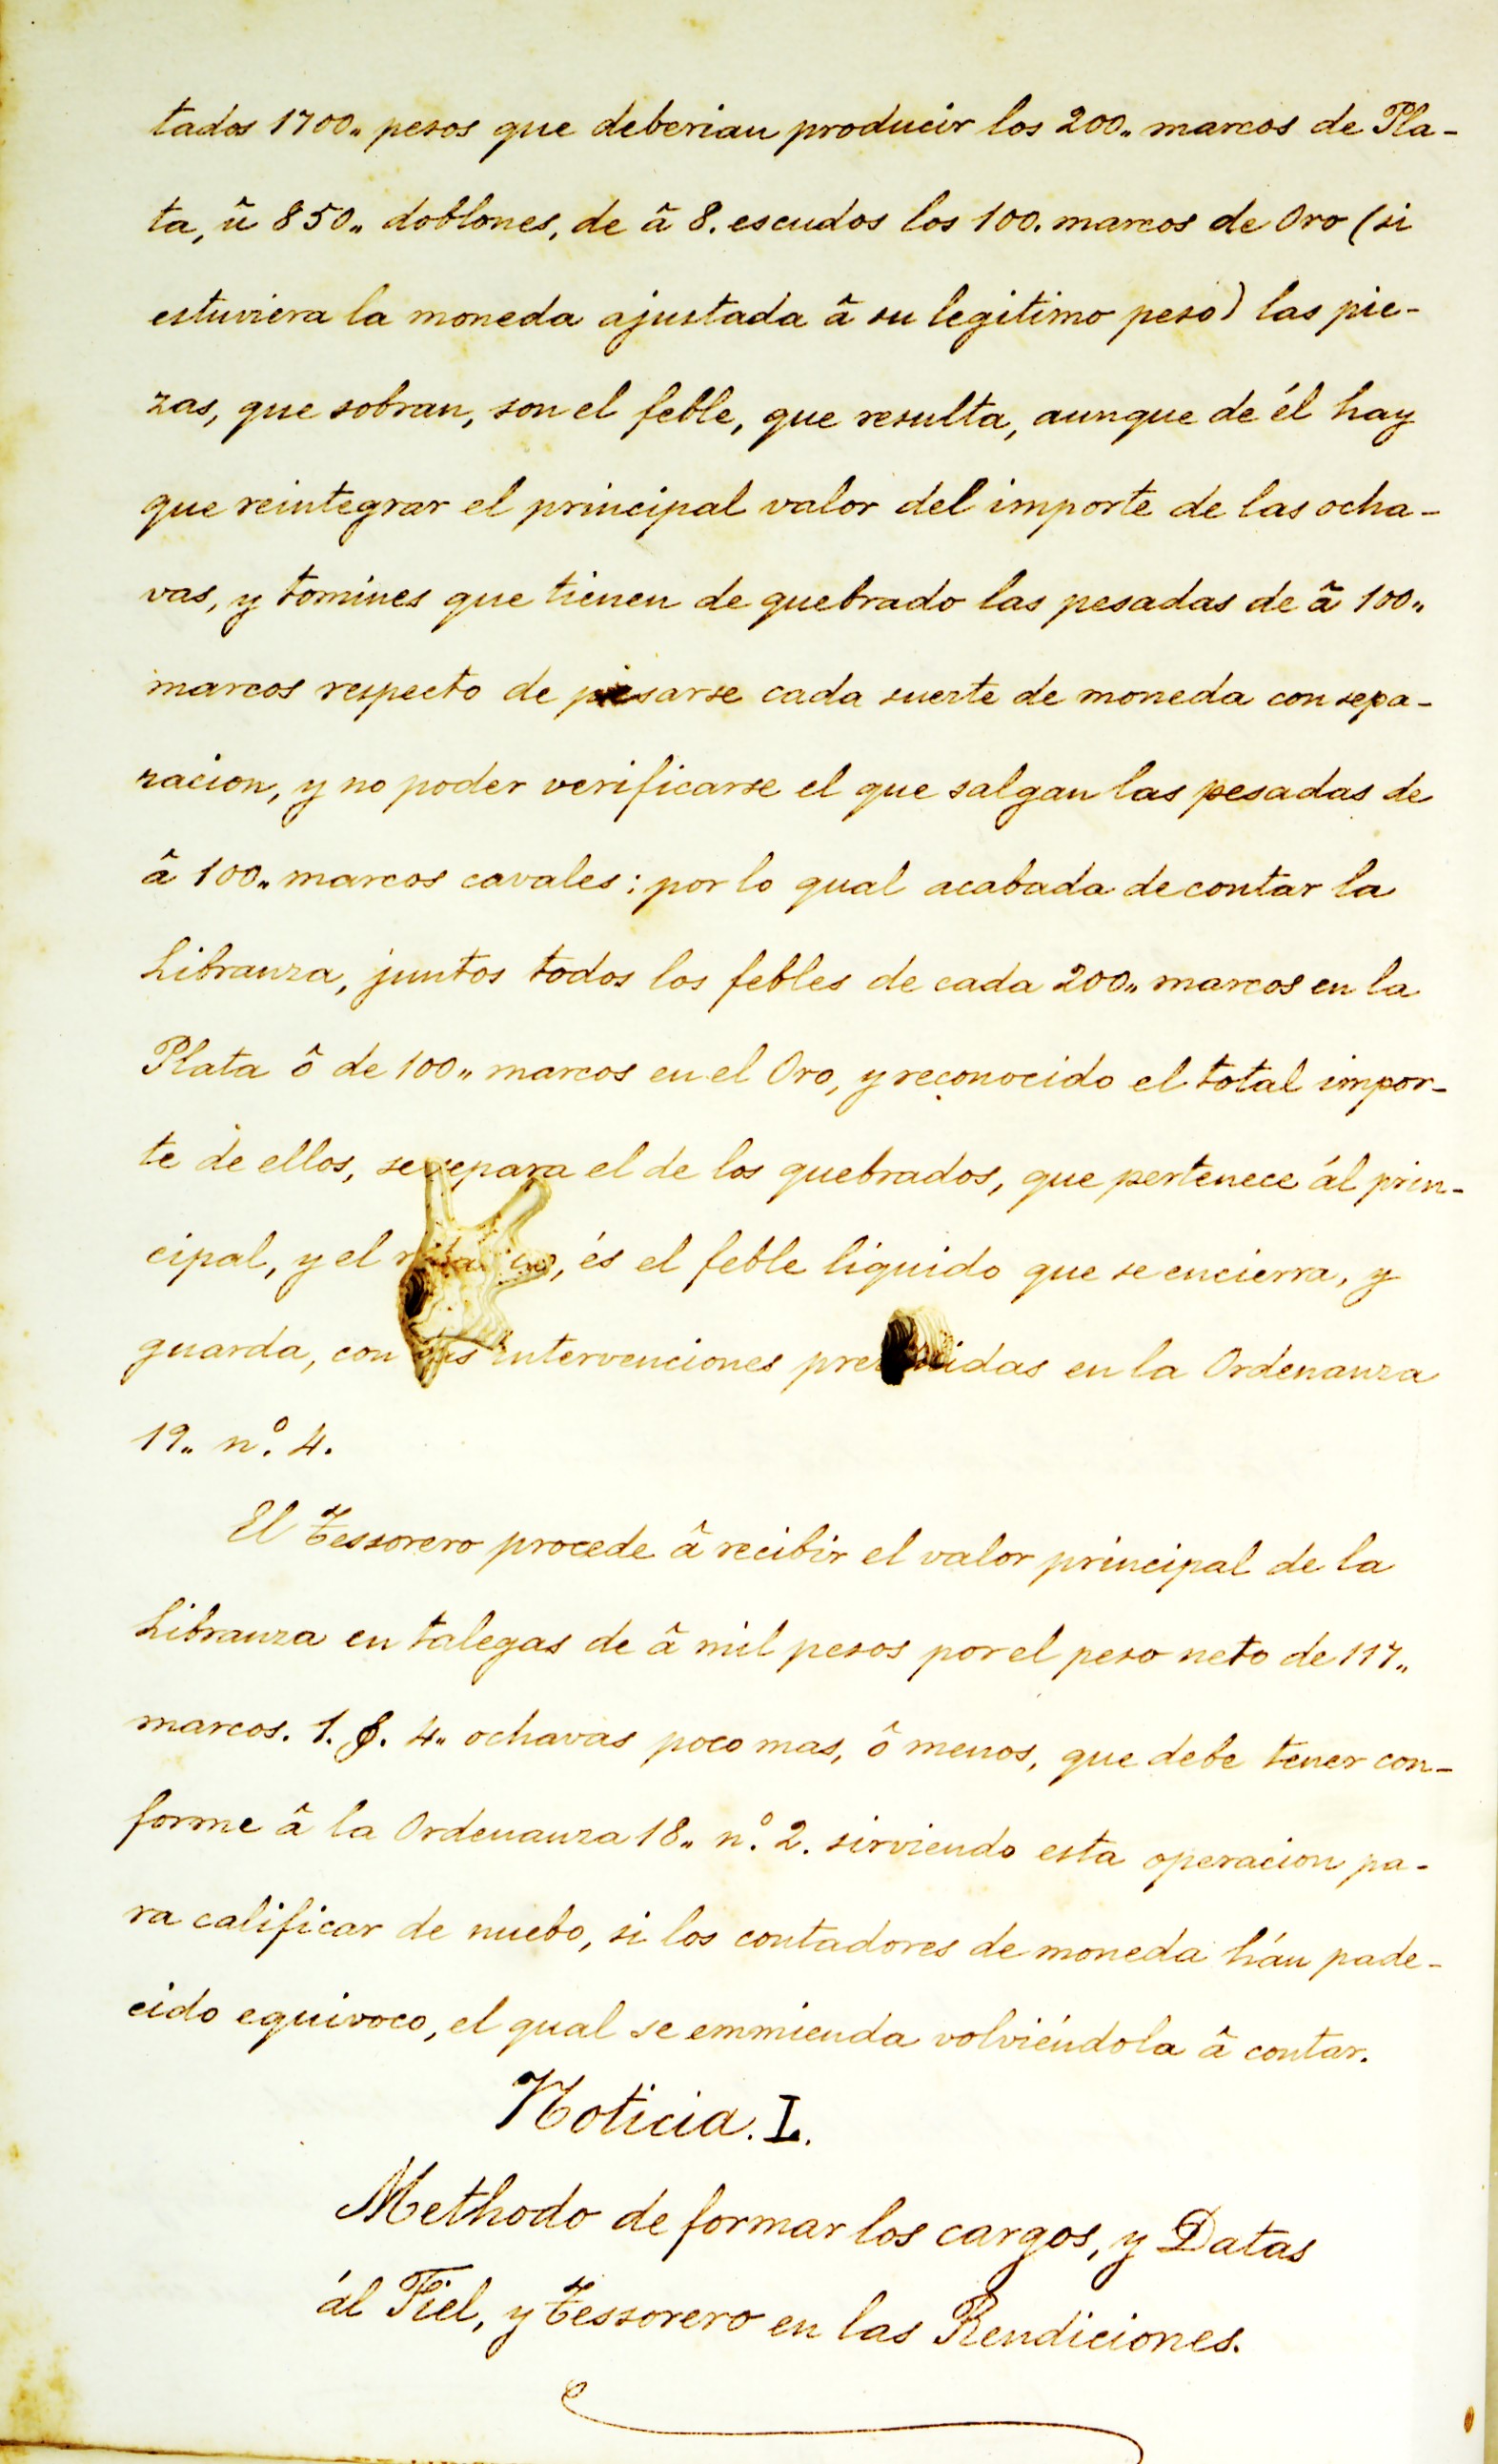 tados 1700„ pesos que deberian producir los 200„ marcos de Pla-
ta, û 850„ doblones, de â 8. escudos los 100. marcos de Oro (si
estuviera la moneda ajustada â su legitimo peso) las pie-
zas, que sobran, son el feble, que resulta, aunque de él hay
que reintegrar el principal valor del importe de las ocha-
vas, y tomines que tienen de quebrado las pesadas de â 100„
marcos respecto de pesarse cada suerte de moneda con sepa-
racion, y no poder verificarse el que salgan las pesadas de
â 100„ marcos cavales: por lo qual acabada de contar la
Libranza, juntos todos los febles de cada 200„ marcos en la
Plata ô de 100„ marcos en el Oro, y reconocido el total impor-
te de ellos, se separa el de los quebrados, que pertenece ál prin-
cipal, y el , és el feble liquido que se encierra, y
guarda, con las intervenciones prevenidas en la Ordenanza
19„ nº. 4.
El Tessorero procede â recibir el valor principal de la
Libranza en talegas de â mil pesos por el peso neto de 117„
marcos. 1. 4„ ochavas poco mas, ô menos, que debe tener con-
forme â la Ordenanza 18„ nº. 2. sirviendo esta operacion pa-
ra calificar de nuebo, si los contadores de moneda hán pade-
cido equivoco, el qual se emmienda volviéndola â contar.
Noticia. L.
Methodo de formar los cargos, y Datas
ál Fiel, y Tessorero en las Rendiciones.